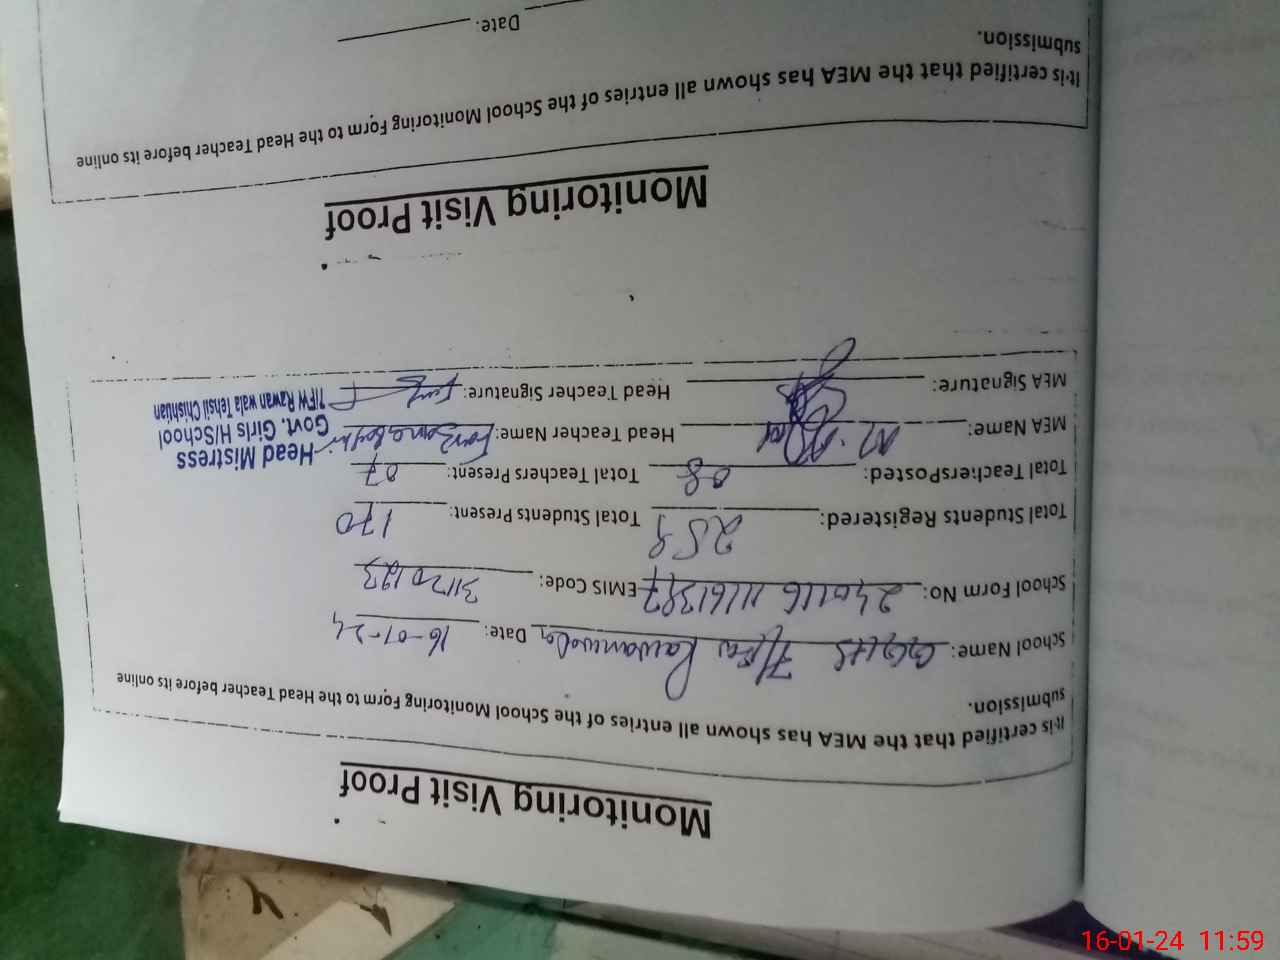 Monitoring Visit Proof
It is certified that the MEA has shown all entries all of the School Monitoring Form to the Head Teacher before its online
submission.
School Name: GGHS 7/FW Rawanwala Date: 16-01-24
School Form No: EMIS Code: 31120123
Total Students Registered: 259 Total Students Present: 170
Total Teachers Posted: 08 Total Teachers Present: 07
MEA Name: Head Teacher Name: Farzana
MEA Signature: Head Teacher Signature:
Head Mistress
Govt. Girls H/School
7/FW Rawan wala Tehsil Chishtian
Monitoring Visit Proof
It is certified that the MEA has shown all entries of the School Monitoring Form to the Head Teacher before its online
submission.
Date:
16-01-24 11:59